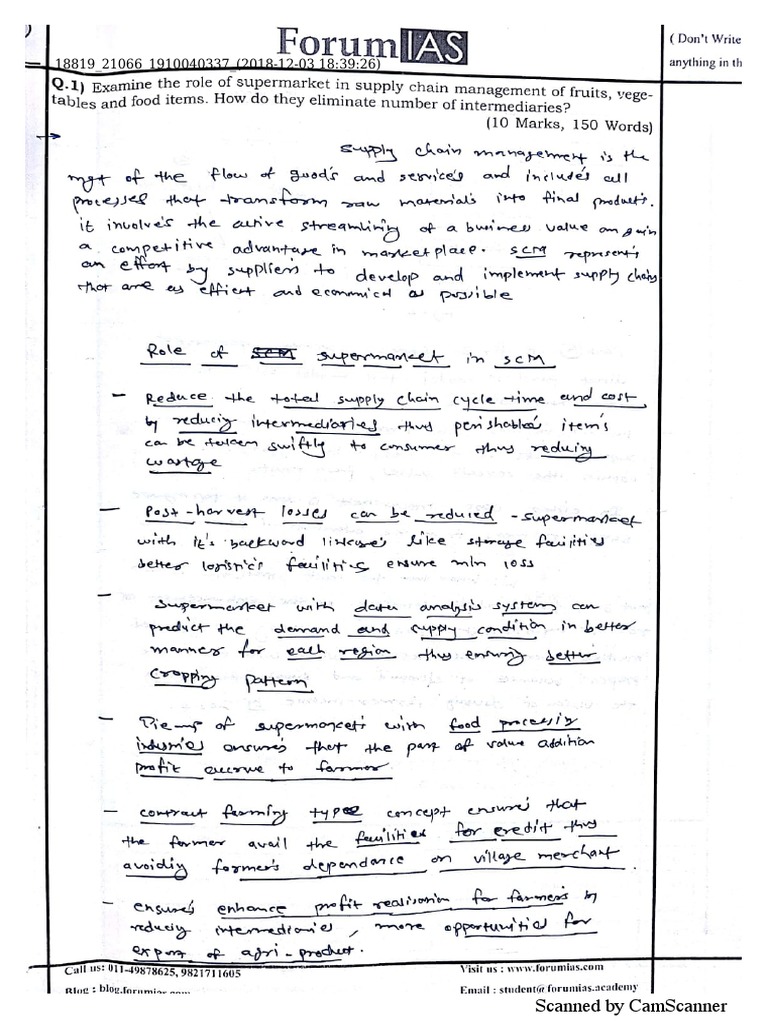 Forum IAS
( Don't Write
anything in th
18819_21066_1910040337_(2018-12-03 18:39:26)
Q.1) Examine the role of supermarket in supply chain management of fruits, vege-
tables and food items. How do they eliminate number of intermediaries?
(10 Marks, 150 Words)
Supply chain management is the
mgt of the flow of good's and service's and include's all
processes that transform raw material's into final product's.
it involve's the active streamlining of a business value
a competitive advantage in marketplace. SCM represent's
an effort by supplier's to develop and implement supply chains
that are as efficient and economical as possible
Role of SCM supermarket in SCM
- Reduce the total supply chain cycle time and cost
by reducing intermediaries thus perishables item's
can be taken swiftly to consumer thus reducing
wastage
- Post-harvest losses can be reduced - supermarket
with it's backward linkage's like storage facilities
better logistic's facilities ensure min loss
- Supermarket with data analysis system can
predict the demand and supply condition in better
manner for each region thus ensuring better
cropping pattern
- Tie-up of supermarket's with food processing
industries ensures that the part of value addition
profit accrue to farmer
- contract farming type concept ensure's that
the farmer avail the facilities for credit thus
avoiding farmer's dependance on village merchant.
- ensure's enhance profit realisation for farmers by
reducing intermediaries, more opportunities for
export of agri-product.
Call us: 011-49878625, 9821711605
Visit us : www.forumias.com
Blog : blog.forumias.com
Email : student@forumias.academy
Scanned by CamScanner